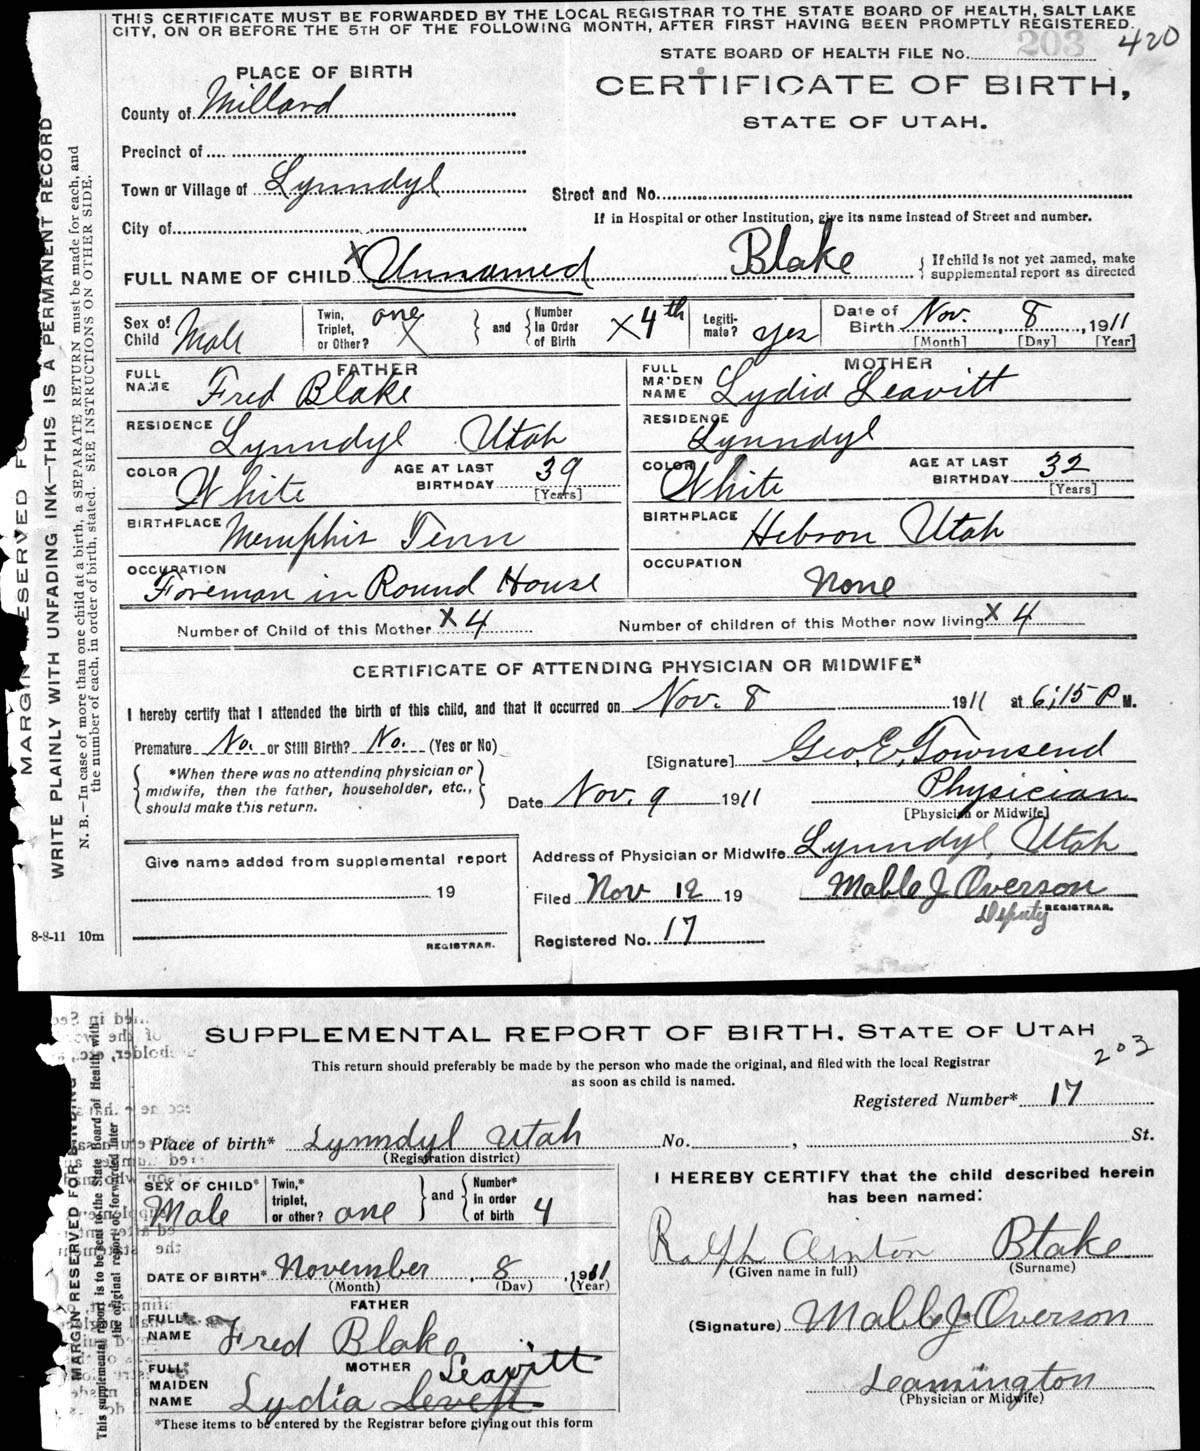 THIS CERTIFICATE MUST BE FORWARDED BY THE LOCAL REGISTRAR TO THE STATE BOARD OF HEALTH, SALT LAKE
CITY, ON OR BEFORE THE 5TH OF THE FOLLOWING MONTH, AFTER FIRST HAVING BEEN PROMPTLY REGISTERED.
STATE BOARD OF HEALTH FILE No. 203 420
PLACE OF BIRTH
CERTIFICATE OF BIRTH,
STATE OF UTAH.
County of Millard
Precinct of
Town or Village of Lynndyl
Street and No.
If in Hospital or other Institution, give its name instead of Street and number.
City of
FULL NAME OF CHILD X Unnamed Blake { If child is not yet named, make supplemental report as directed
Sex of Child Male Twin, Triplet, or Other? one X } and { Number in Order of Birth X 4th Legitimate? yes Date of Birth Nov. 8, 1911
[Month] [Day] [Year]
FATHER
FULL NAME Fred Blake
RESIDENCE Lynndyl Utah
COLOR White AGE AT LAST BIRTHDAY 39
[Years]
BIRTHPLACE Memphis Tenn
OCCUPATION Foreman in Round House
MOTHER
FULL MAIDEN NAME Lydia Leavitt
RESIDENCE Lynndyl
COLOR White AGE AT LAST BIRTHDAY 32
[Years]
BIRTHPLACE Hebron Utah
OCCUPATION None
Number of Child of this Mother X 4 Number of children of this Mother now living X 4
CERTIFICATE OF ATTENDING PHYSICIAN OR MIDWIFE*
I hereby certify that I attended the birth of this child, and that it occurred on Nov. 8 1911 at 6:15 P M.
Premature No. or Still Birth? No. (Yes or No)
[Signature] Geo. E. Townsend
{ *When there was no attending physician or midwife, then the father, householder, etc., should make this return. }
Date Nov. 9 1911 Physician
[Physician or Midwife]
Give name added from supplemental report
19
REGISTRAR.
Address of Physician or Midwife Lynndyl, Utah
Filed Nov 12 19 Mable J Overson
Deputy REGISTRAR.
Registered No. 17
8-8-11 10m
MARGIN RESERVED FO
WRITE PLAINLY WITH UNFADING INK—THIS IS A PERMANENT RECORD
N. B.—In case of more than one child at a birth, a SEPARATE RETURN must be made for each, and
the number of each, in order of birth, stated. SEE INSTRUCTIONS ON OTHER SIDE.
SUPPLEMENTAL REPORT OF BIRTH, STATE OF UTAH
203
This return should preferably be made by the person who made the original, and filed with the local Registrar
as soon as child is named.
Registered Number* 17
Place of birth* Lynndyl Utah No. , St.
(Registration district)
SEX OF CHILD* Male Twin,* triplet, or other? one } and { Number* in order of birth 4
DATE OF BIRTH* November, 8, 1911
(Month) (Day) (Year)
FATHER
FULL* NAME Fred Blake
MOTHER
FULL* MAIDEN NAME Lydia Leavitt
*These items to be entered by the Registrar before giving out this form
I HEREBY CERTIFY that the child described herein
has been named:
Ralph Clinton Blake
(Given name in full) (Surname)
(Signature) Mable J. Overson
Leamington
(Physician or Midwife)
MARGIN RESERVED FOR BINDING
This supplemental report is to be sent to the State Board of Health with
the original report or forwarded later